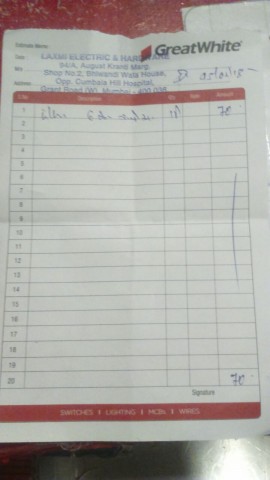 Estimate Memo
GreatWhite
Date
LAXMI ELECTRIC & HARDWARE
M/s
94/A, August Kranti Marg,
Shop No.2, Bhiwandi Wala House,
Address
Opp. Cumbala Hill Hospital,
Grant Road (W), Mumbai - 400 036
S.No Description Qty Rate Amount
1 70
2
3
4
5
6
7
8
9
10
11
12
13
14
15
16
17
18
19
20 70
Signature
SWITCHES | LIGHTING | MCBs | WIRES